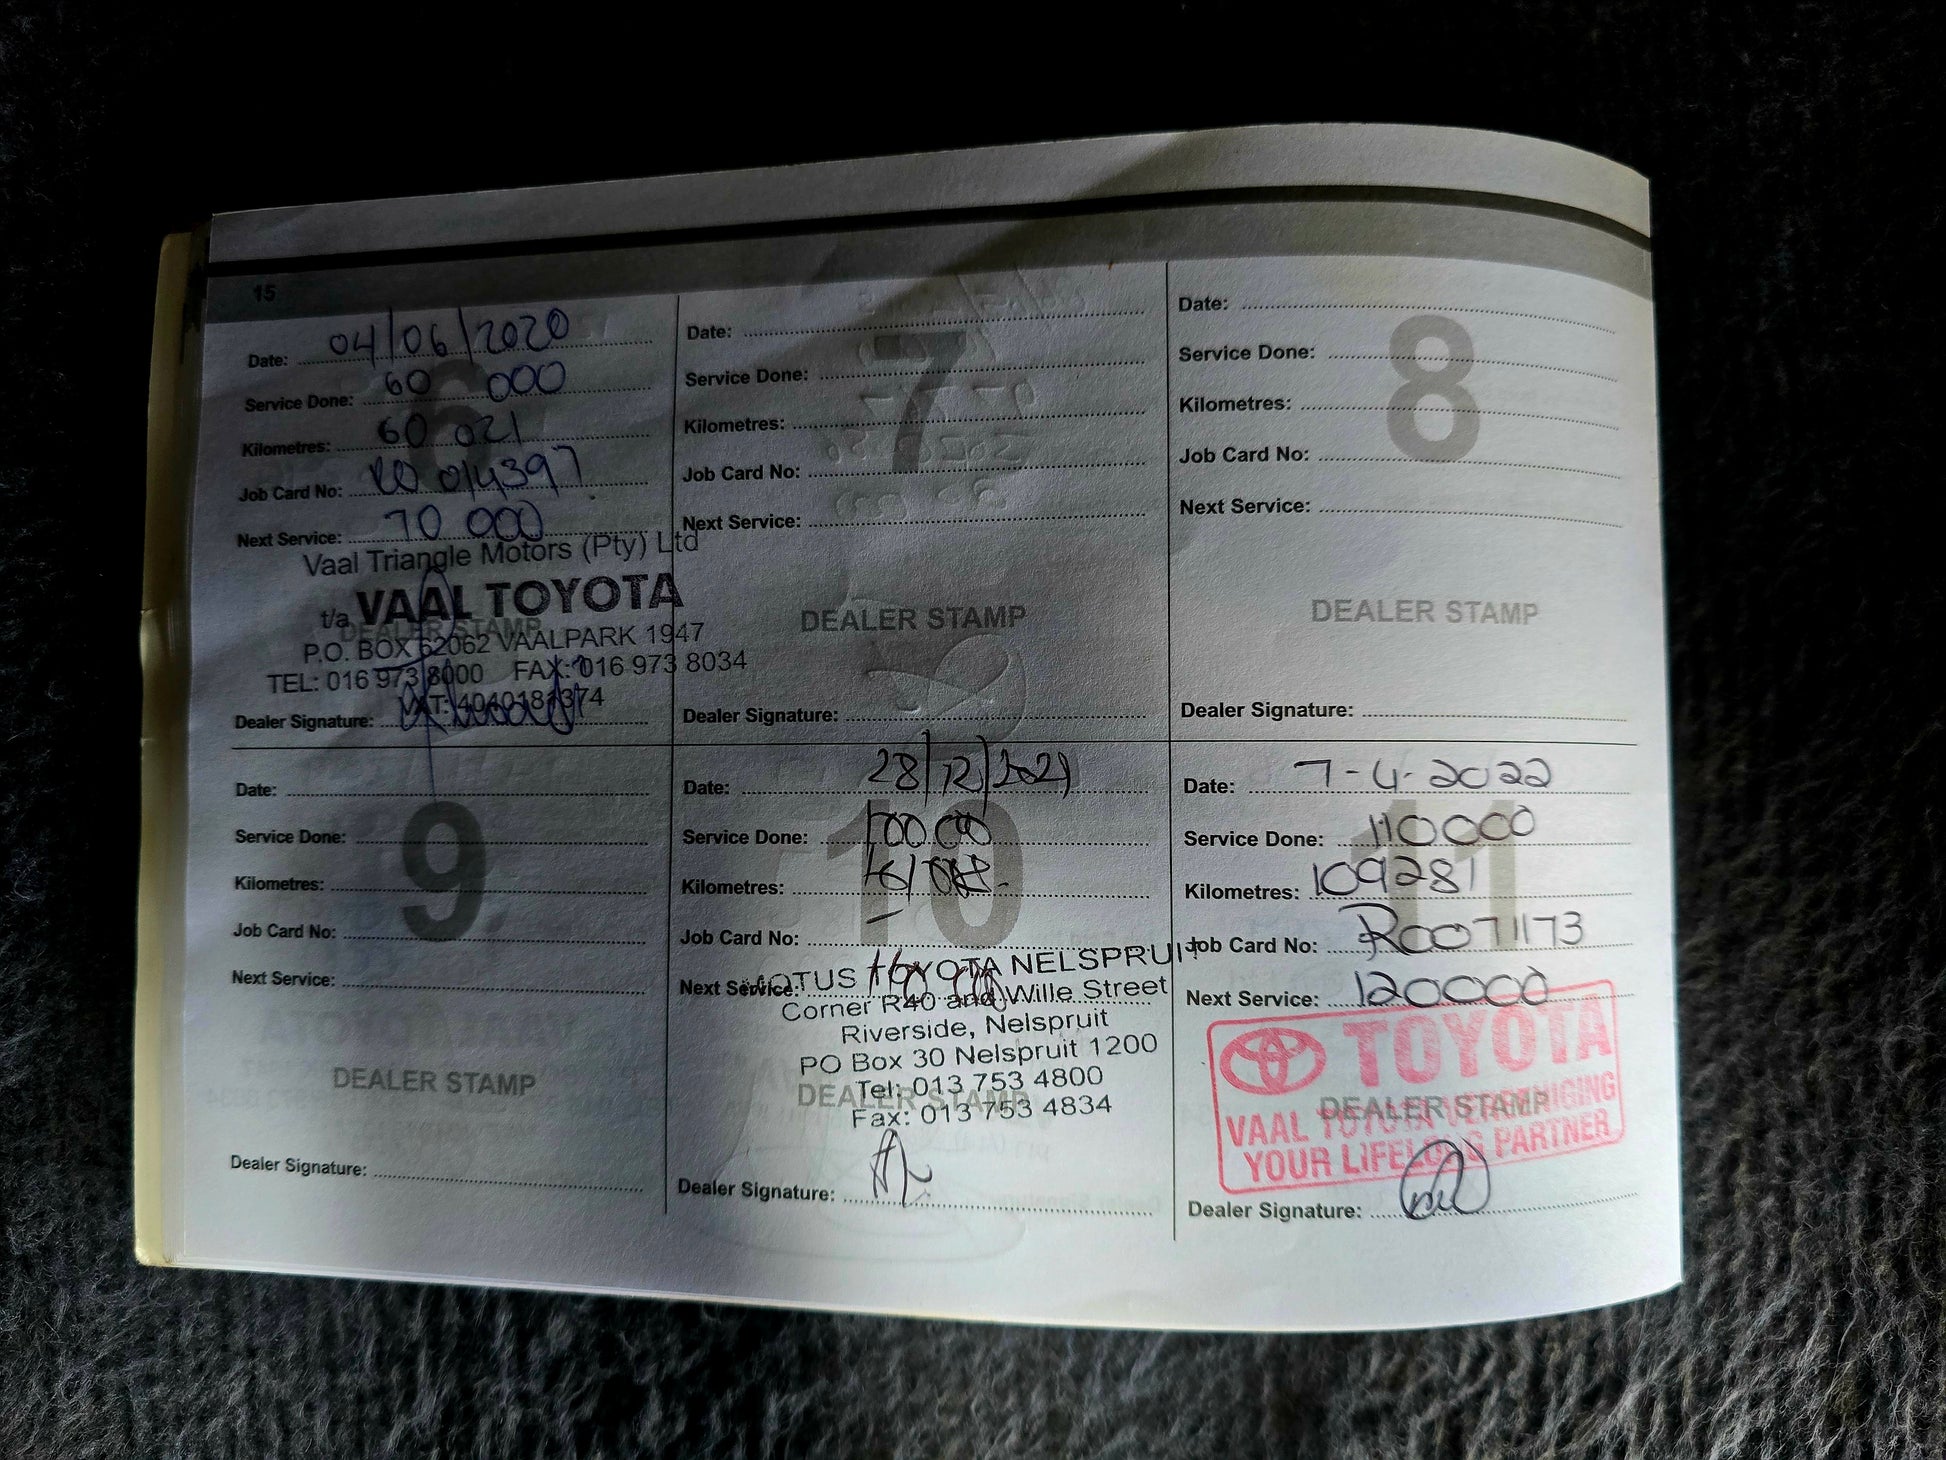 15
6
Date: 04/06/2020
Service Done: 60 000
Kilometres: 60 021
Job Card No: RO 014397
Next Service: 70 000
Vaal Triangle Motors (Pty) Ltd
t/a VAAL TOYOTA
DEALER STAMP
P.O. BOX 62062 VAALPARK 1947
TEL: 016 973 8000 FAX: 016 973 8034
VAT: 4040181374
Dealer Signature:
7
Date:
Service Done:
Kilometres:
Job Card No:
Next Service:
DEALER STAMP
Dealer Signature:
8
Date:
Service Done:
Kilometres:
Job Card No:
Next Service:
DEALER STAMP
Dealer Signature:
9
Date:
Service Done:
Kilometres:
Job Card No:
Next Service:
DEALER STAMP
Dealer Signature:
10
Date: 28/12/2021
Service Done: 100 000
Kilometres:
Job Card No:
Next Service:
MOTUS TOYOTA NELSPRUIT
Corner R40 and Wille Street
Riverside, Nelspruit
PO Box 30 Nelspruit 1200
Tel: 013 753 4800
DEALER STAMP
Fax: 013 753 4834
Dealer Signature:
11
Date: 7-4-2022
Service Done: 110000
Kilometres: 109281
Job Card No: RO071173
Next Service: 120000
TOYOTA
DEALER STAMP
VAAL TOYOTA VEREENIGING
YOUR LIFELONG PARTNER
Dealer Signature: